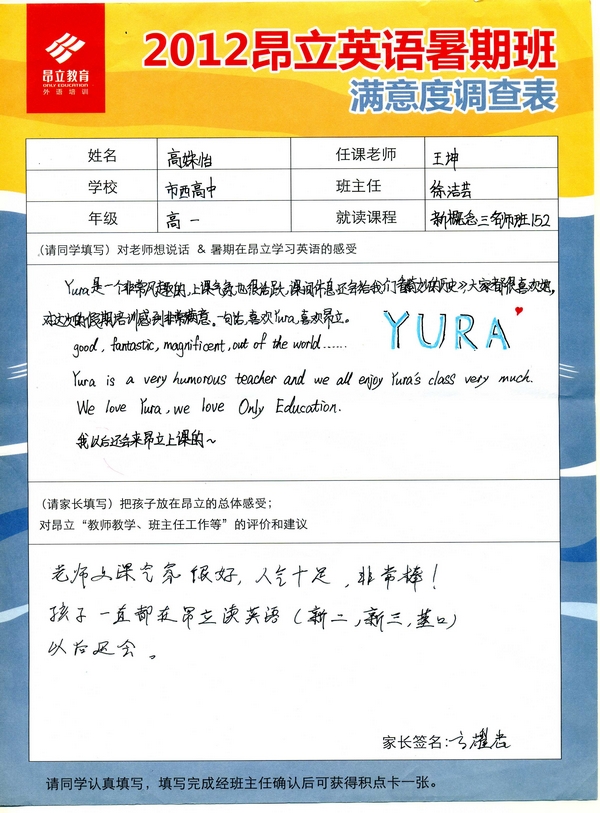 昂立教育
ONLY EDUCATION
外语培训
2012昂立英语暑期班
满意度调查表
姓名 高姝怡 任课老师 王坤
学校 市西高中 班主任 徐洁芸
年级 高一 就读课程 新概念三名师班152
(请同学填写) 对老师想说话 & 暑期在昂立学习英语的感受
Yura是一个非常风趣的,上课气氛也很活跃,课间休息还会给我们看 的历史,大家都很喜欢她.
对这次的假期培训感到非常满意. 一句话,喜欢Yura,喜欢昂立.
YURA
good, fantastic, magnificent, out of the world......
Yura is a very humorous teacher and we all enjoy Yura's class very much.
We love Yura, we love Only Education.
我以后还会来昂立上课的~
(请家长填写) 把孩子放在昂立的总体感受;
对昂立“教师教学、班主任工作等”的评价和建议
老师上课气氛很好,人气十足,非常棒!
孩子一直都在昂立读英语(新二,新三,基口)
以后还会。
家长签名:
请同学认真填写,填写完成经班主任确认后可获得积点卡一张。